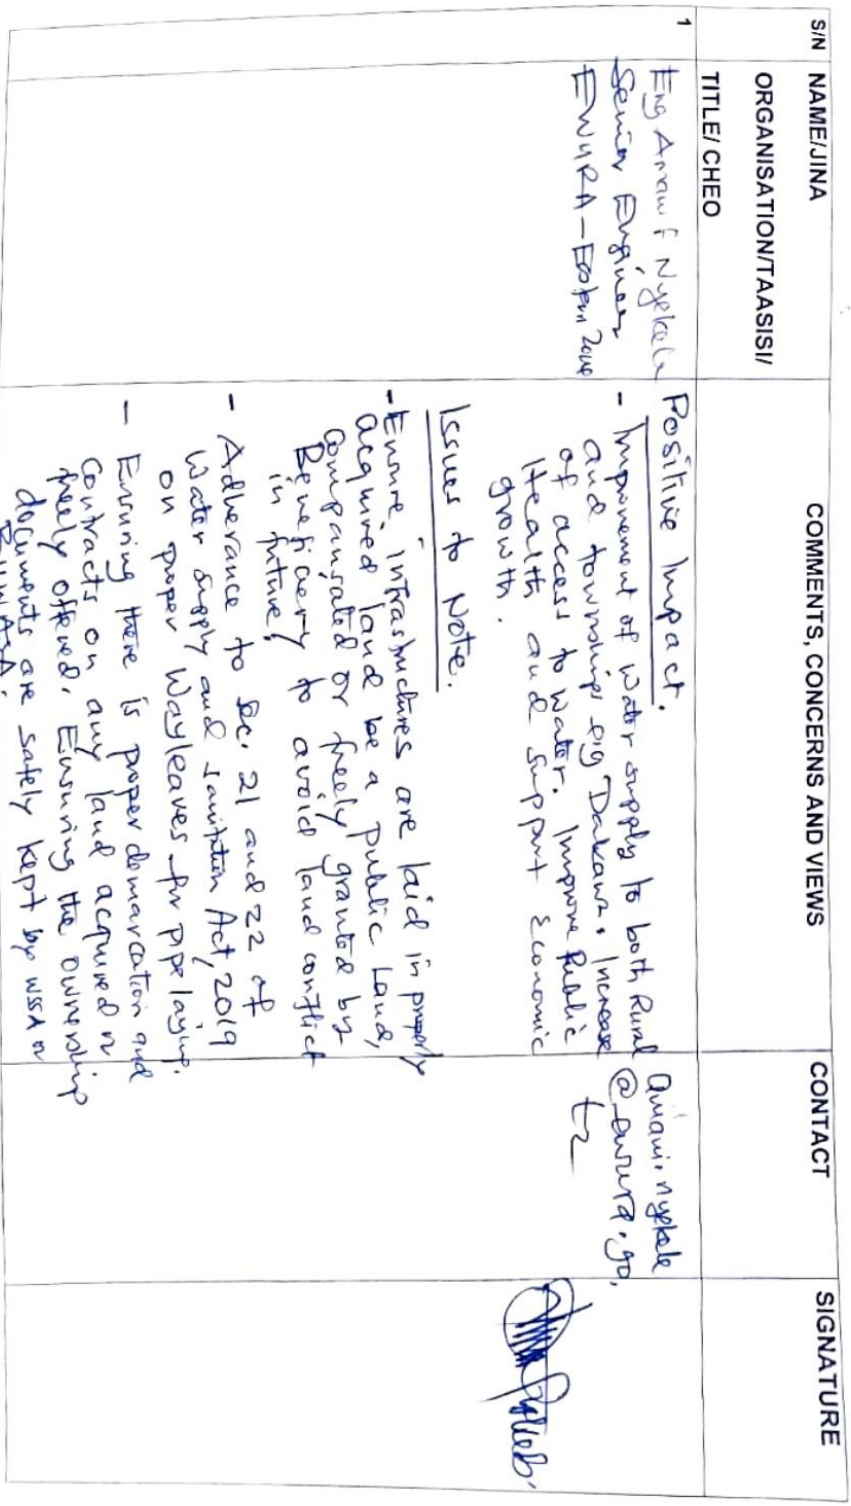 S/N
NAME/JINA
ORGANISATION/TAASISI/
TITLE/ CHEO
COMMENTS, CONCERNS AND VIEWS
CONTACT
SIGNATURE
1
Eng Amani F Nyekele
Senior Engineer
EWURA - Eastern Zone
Positive Impact.
- Improvement of Water supply to both Rural
and townships eg Dakawa. Increase
of access to water. Improve Public
Health and support Economic
growth.
Issues to Note.
- Ensure, infrastructures are laid in properly
acquired land be a public Land,
Compansated or freely granted by
Beneficiery to avoid land conflict
in future.
- Adherance to Sec. 21 and 22 of
Water supply and sanitation Act, 2019
on proper Wayleaves for pipe laying.
- Ensuring there is proper demarcation and
Contracts on any land acquired or
freely offered. Ensuring the ownership
documents are safely kept by WSSA or
RUWASA.
amani.nyekele
@ewura.go.
tz